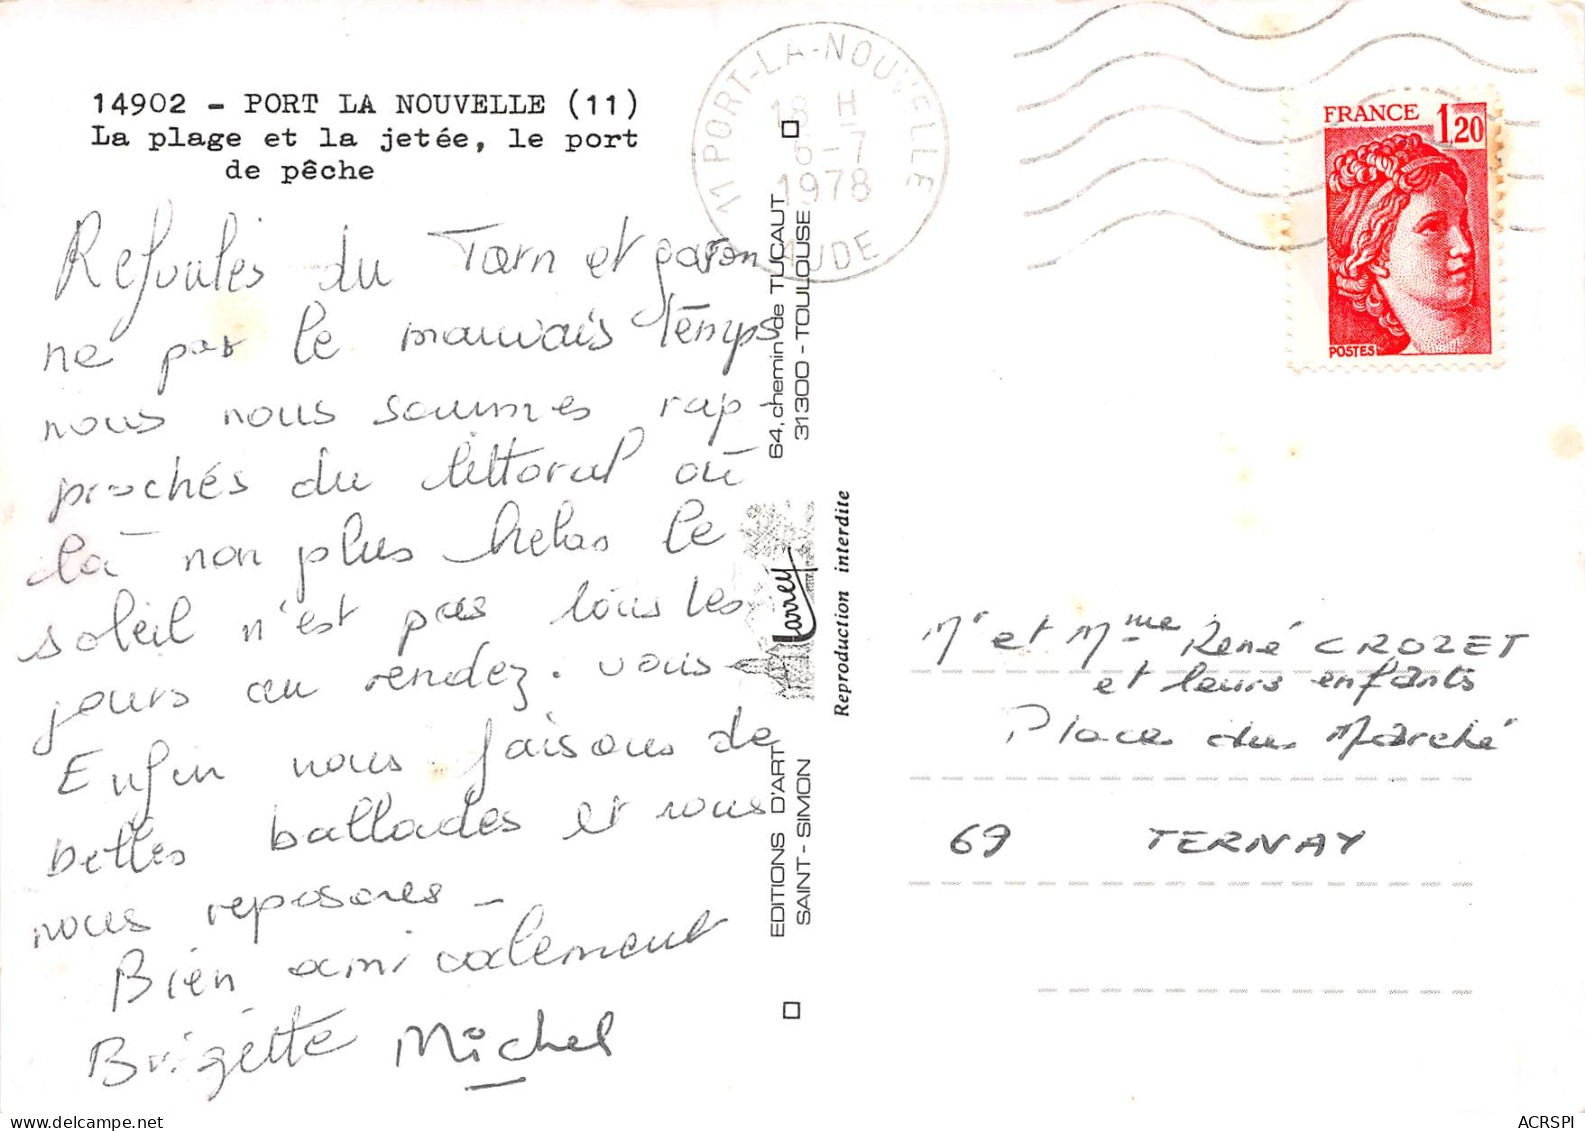 14902 - PORT LA NOUVELLE (11)
La plage et la jetée, le port
de pêche
Refoulés du Tarn et garon
ne par le mauvais temps
nous nous sommes rap-
prochés du littoral où
là non plus helas le
soleil n'est pas tous les
jours au rendez-vous
Enfin nous faisons de
belles ballades et nous
nous reposons -
Bien amicalement
Brigitte Michel
11 PORT-LA-NOUVELLE
18 H
6-7
1978
AUDE
64, chemin de TUCAUT
31300 - TOULOUSE
Larrey
Reproduction interdite
EDITIONS D'ART
SAINT-SIMON
FRANCE 1,20
POSTES
Mr et Mme René CROZET
et leurs enfants
Place du Marché
69 TERNAY
delcampe.net
ACRSPI